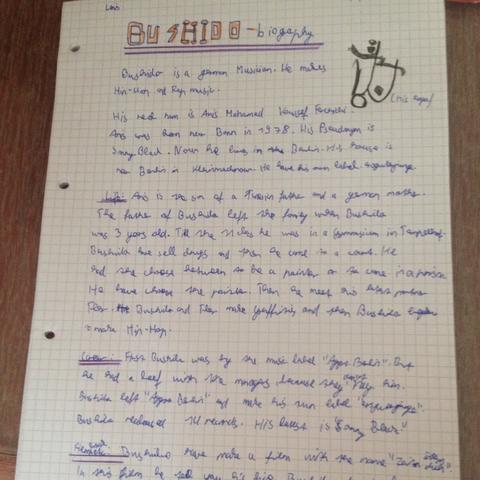 BUSHIDO - biography
Bushido is a german Musician. He makes
Hip-Hop and Rap music.
His real name is Anis Mohamed Youssef Ferchichi.
Anis was born near Bonn in 1978. His Pseudonym is
Sony Black. Now he lives in the Berlin. His house is
near Berlin in Kleinmachnow. He have his own label
Anis is the son of a Tunesian father and a german mother.
The father of Bushido left the family when Bushido
was 3 years old. Till the 11 class he was in a Gymnasium in Tempelhof.
Bushido have sell drugs and then he come to a court. He
had the choose between to be a painter or to come in a prison.
He have choose the painter. Then he meet his
Fler. Bushido and Fler make graffitis and then Bushido
make Hip-Hop.
Career: First Bushido was by the music label "Aggro Berlin". But
he had a beef with the managers because they him.
Bushido left "Aggro Berlin" and make his own label "ersguterjunge".
Bushido released 14 records. His latest is "Sony Black"
Bushido have make a film with the name "Zeiten ändern dich".
In this film he tell you his